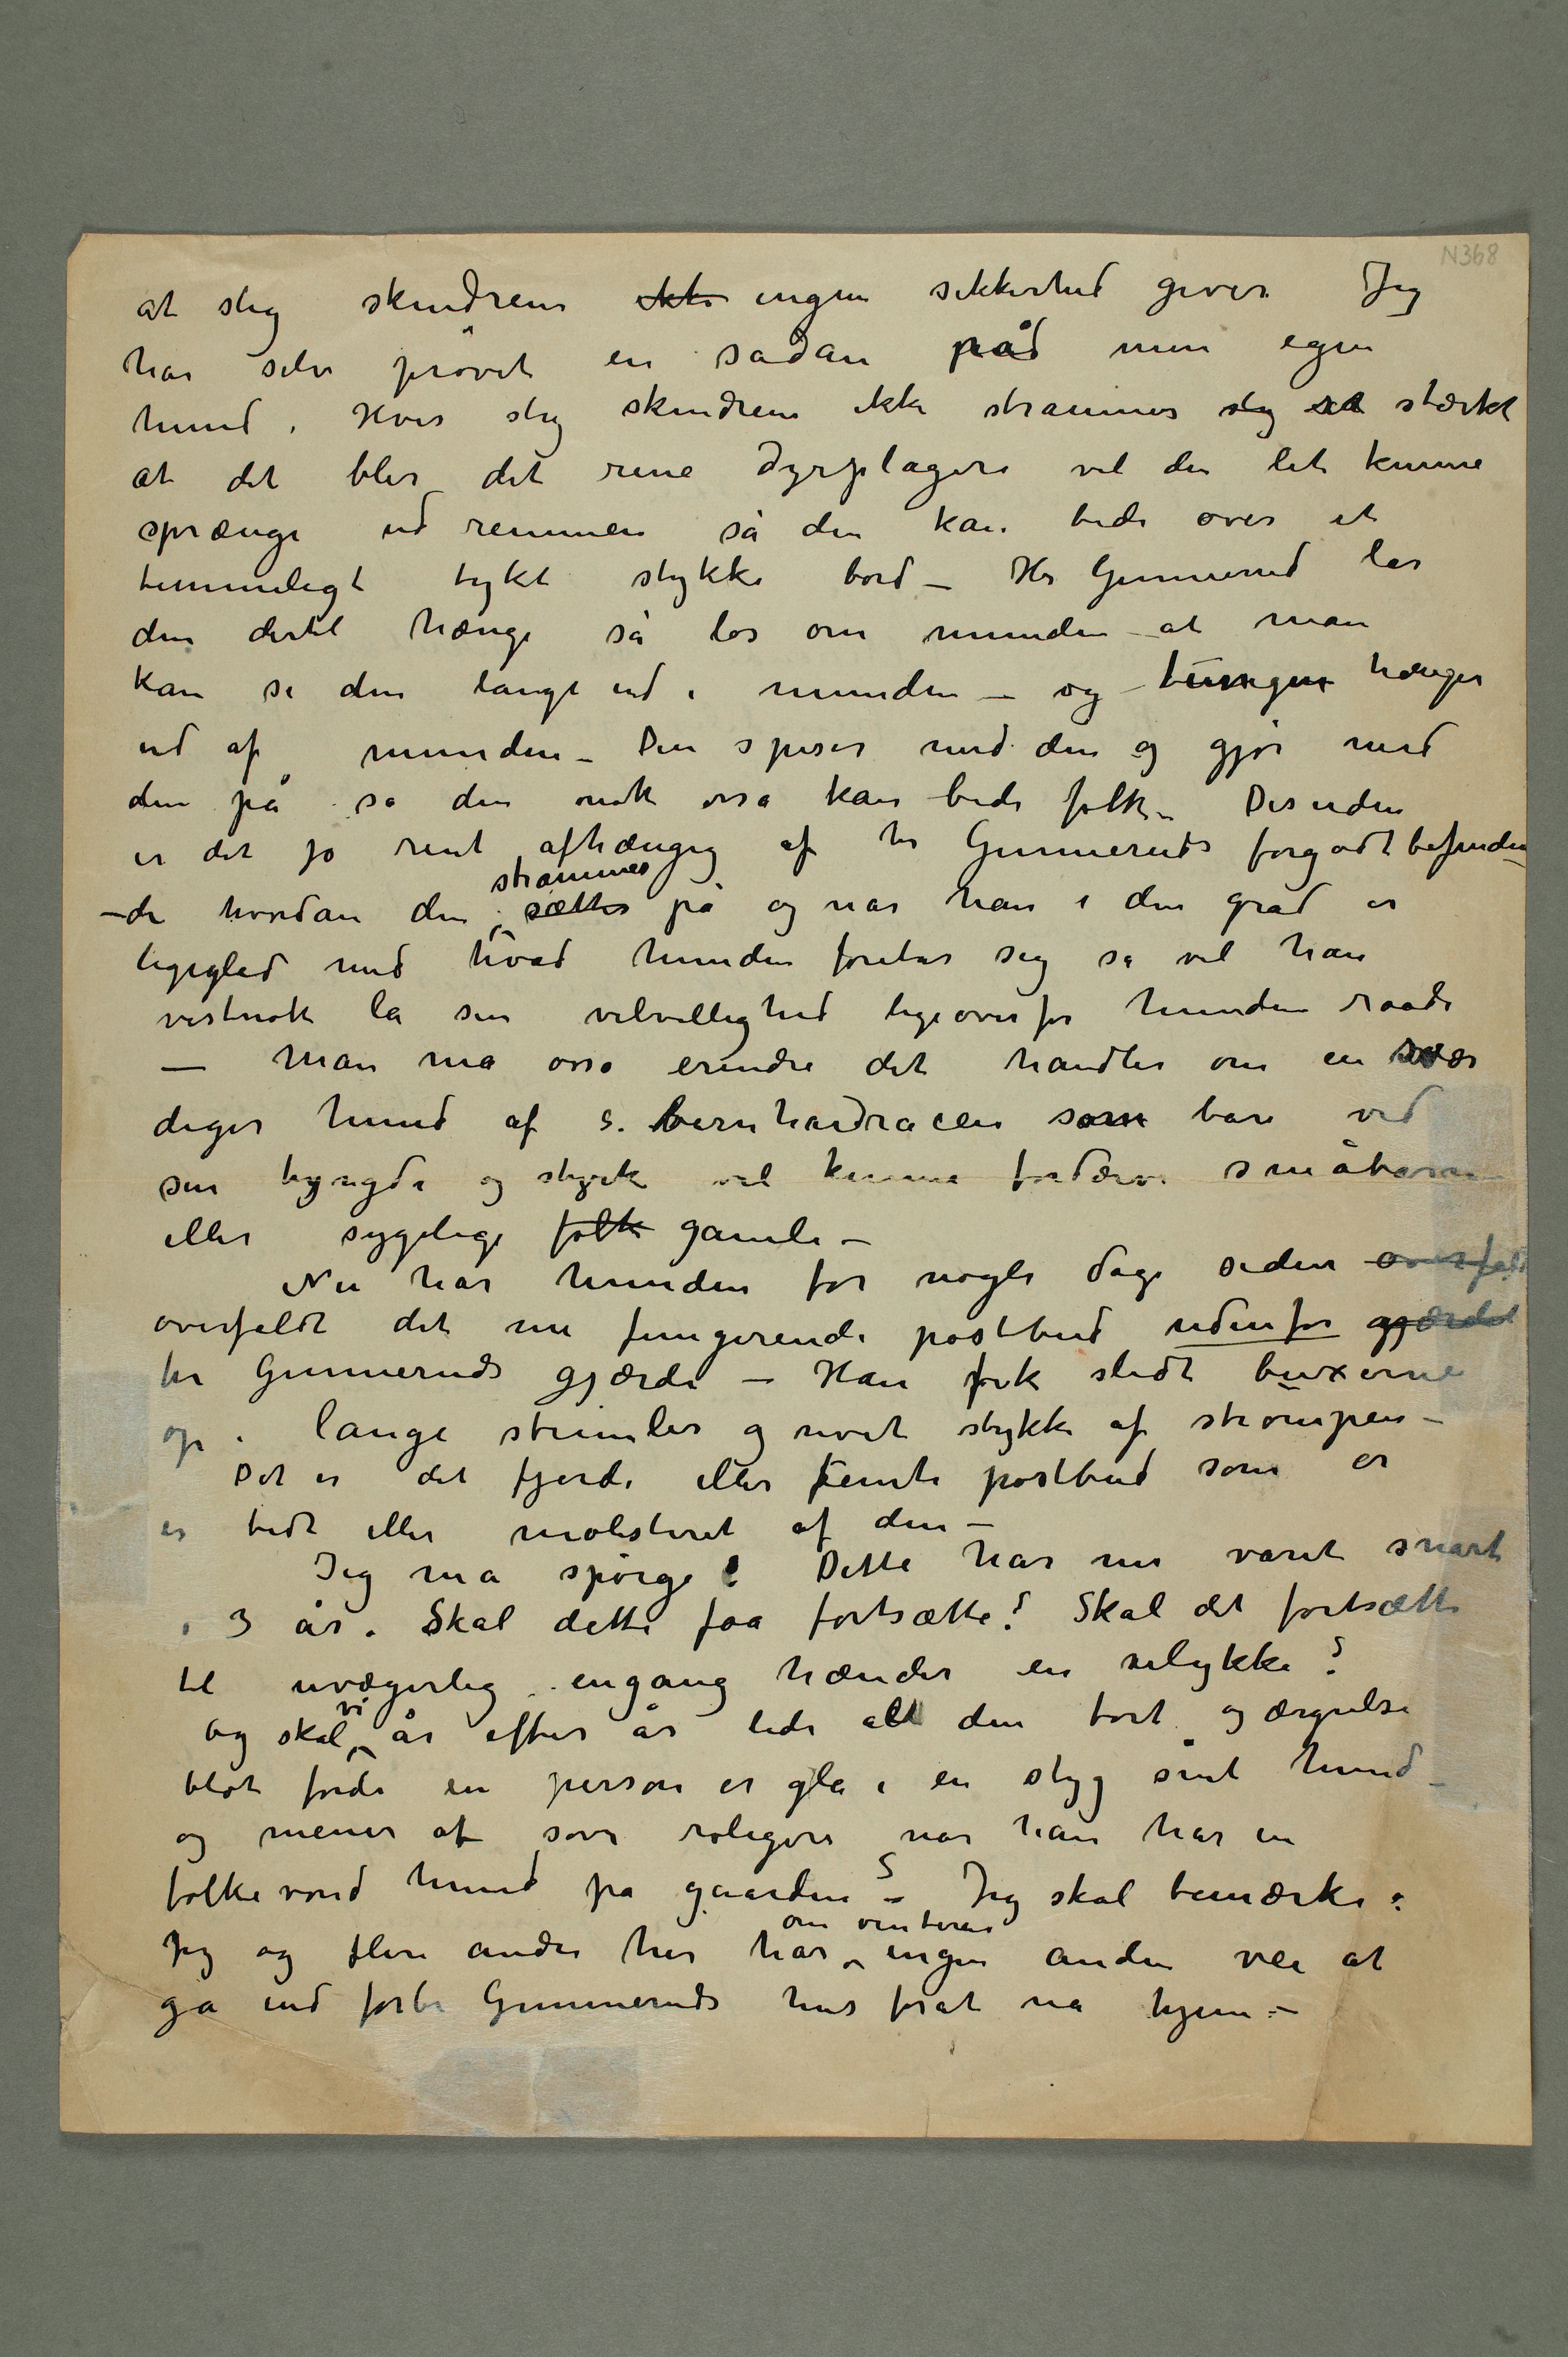 N368
at slig skindrem ikke ingen sikkerhed giver Jeg
har selv prøvet en sådan på min egen
hund. Hvis slig skindrem ikke strammes slig så stærkt
at det blir det rene dyrplageri vil den let kunne
sprænge ud remmen så den kan bide over et
temmeligt tykt stykke bord – Hr Gunnerud lar
den dertil hænge så løs om munden at man
kan se den langt ind i munden – og tungen hænger
ud af munden – Den spiser med den og gjør med
den på så den nok osså kan bide folk – Desuden
er det jo rent afhængig af hr Gunneruds forgodtbefinden
–de hvordan den sættes strammes på og når han i den grad er
ligeglad med hvad hunden foretar sig så vil han
vistnok la sin velvillighed ligeoverfor hunden raade
– Man må osså erindre det handler om en svær
diger hund af S. Bernhardracen som bare ved
sin tyngde og styrke vil kunne fordærve småbørn
eller sygelige folk gamle –
Nu har hunden for nogle dage siden overfaldt
overfaldt det nu fungerende postbud udenfor gjærdet
hr Gunneruds gjærde – Han fik slidt buxerne
op i lange strimler og revet stykke af strømpen –
Det er det fjerde eller femte postbud som er
er bidt eller molesteret af den –
Jeg må spørge: Dette har nu varet snart
i 3 år. Skal dette faa fortsætte? Skal det fortsætte
til uvægerlig engang hænder en ulykke?
Og skal vi år efter år lide alt den tort og ærgrelse
blot fordi en person er gla i en styg sint hund –
og mener at sove roligere når han har en
folkevond hund på gaarden? – Jeg skal bemærke:
Jeg og flere andre her har om vinteren ingen anden vei at
gå end forbi Gunneruds hus forat nå hjem –